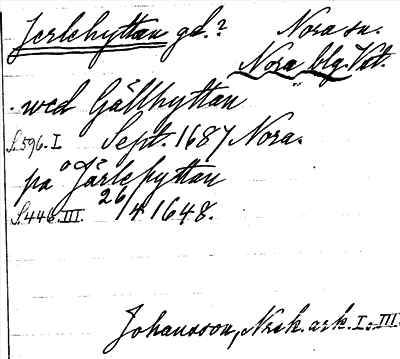 Jerlehyttan gd.? Nora sn.
Nora blg. Vstm.
wed Gällhyttan
S. 596. I Sept. 1687 Nora.
på Järlehyttan
S. 446. III. 26/4 1648.
Johansson, Nrsk. ark. I o. III.